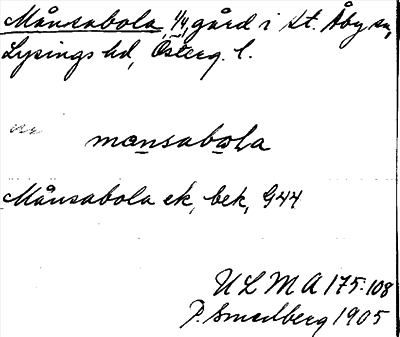 Månsabola, 1/4, gård i St. Åby sn,
Lysings hd, Österg. l.
mansabola
Månsabola ek, bek, G44
ULMA 175:108
P. Smedberg 1905